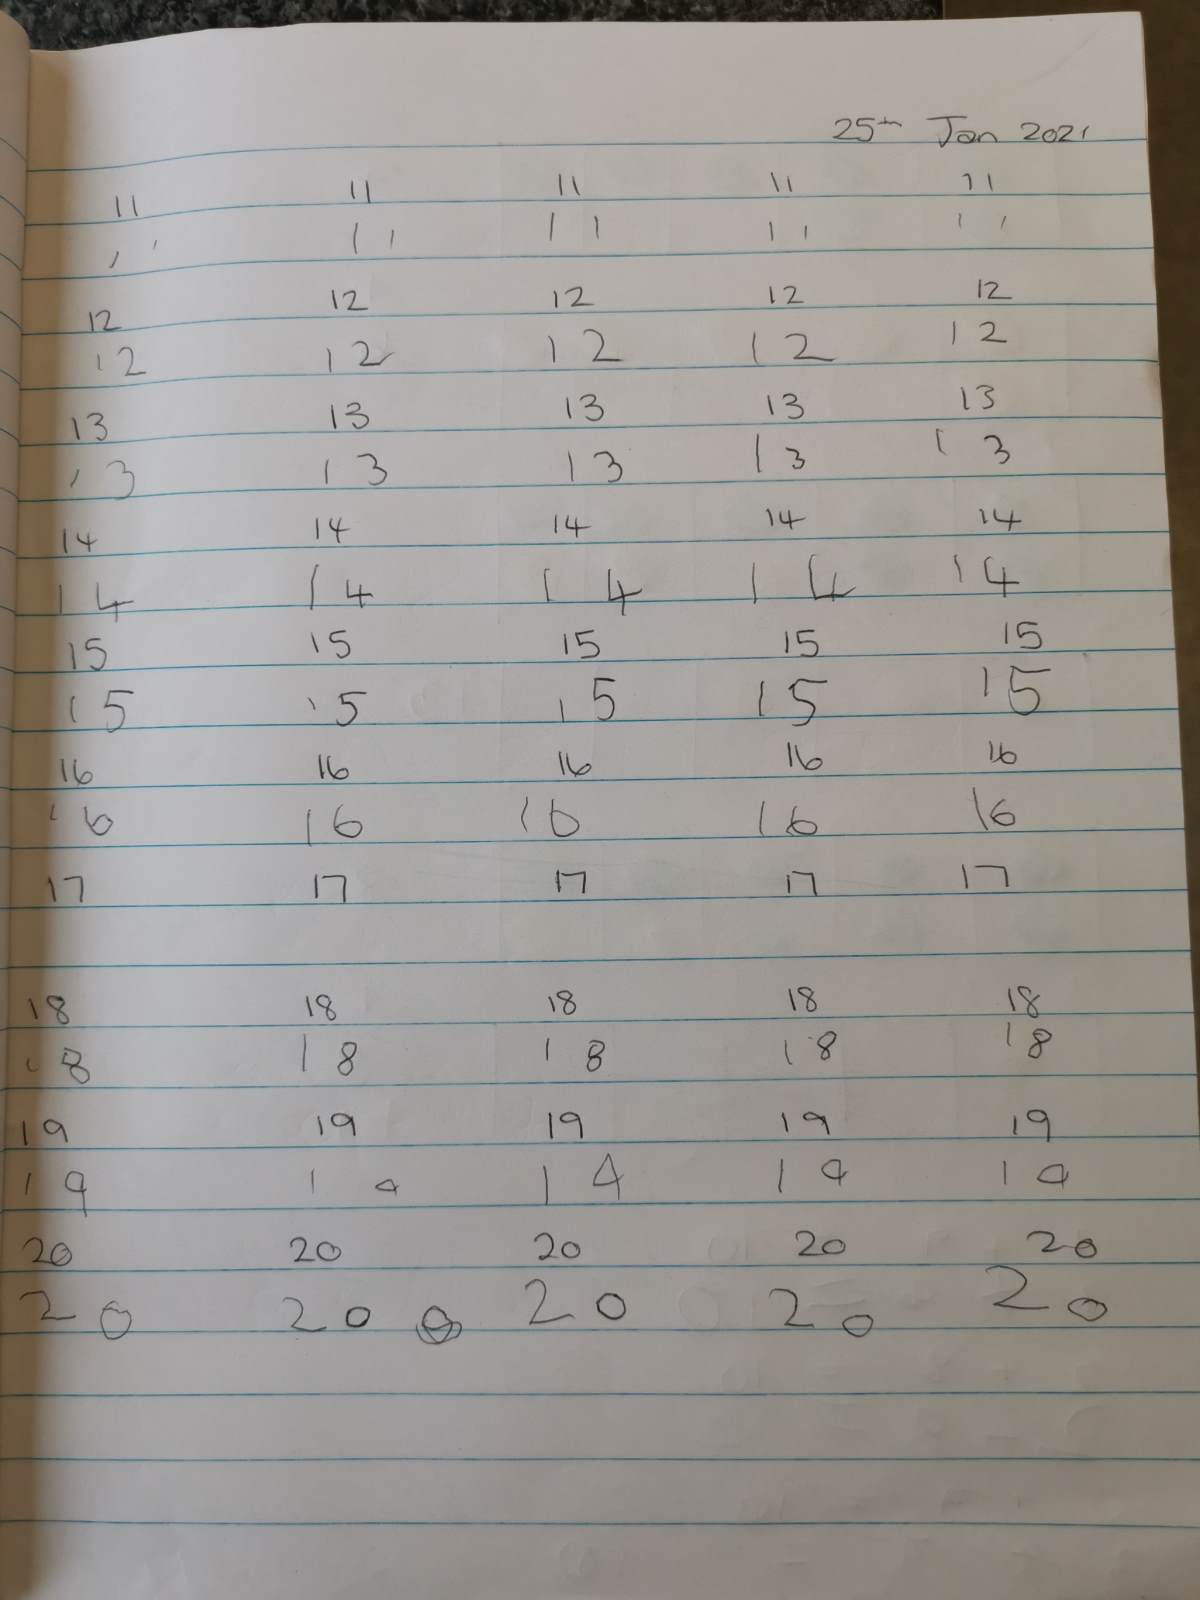 25th Jan 2021
11 11 11 11 11
11 11 11 11 11
12 12 12 12 12
12 12 12 12 12
13 13 13 13 13
13 13 13 13 13
14 14 14 14 14
14 14 14 14 14
15 15 15 15 15
15 15 15 15 15
16 16 16 16 16
16 16 16 16 16
17 17 17 17 17
18 18 18 18 18
18 18 18 18 18
19 19 19 19 19
19 19 19 19 19
20 20 20 20 20
20 20 20 20 20